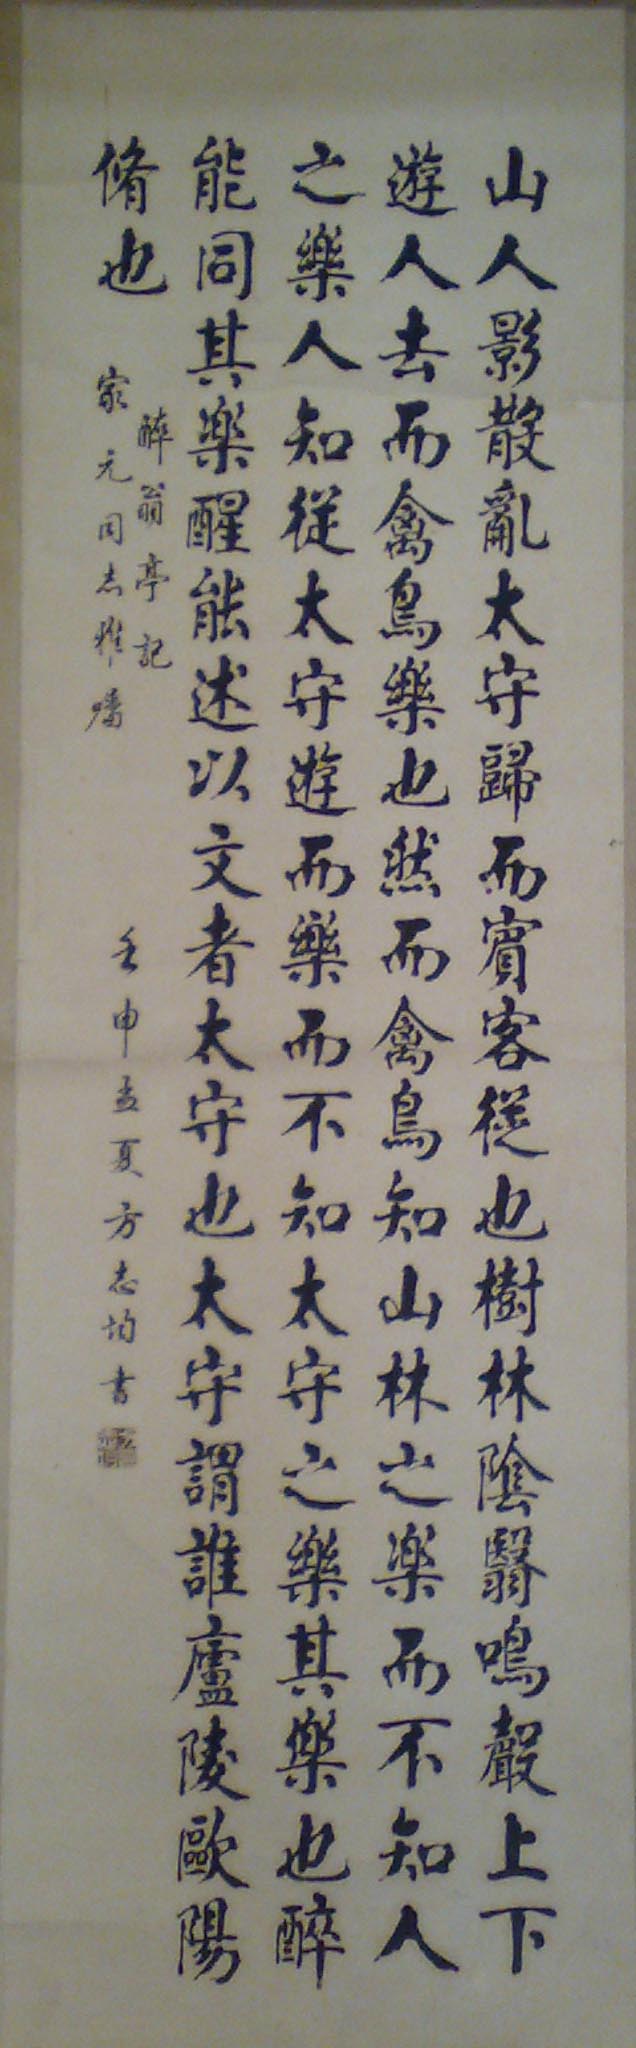 山人影散亂太守歸而賓客從也樹林陰翳鳴聲上下
遊人去而禽鳥樂也然而禽鳥知山林之樂而不知人
之樂人知從太守遊而樂而不知太守之樂其樂也醉
能同其樂醒能述以文者太守也太守謂誰廬陵歐陽
脩也
醉翁亭記
家元同志雅囑
壬申孟夏方志均書